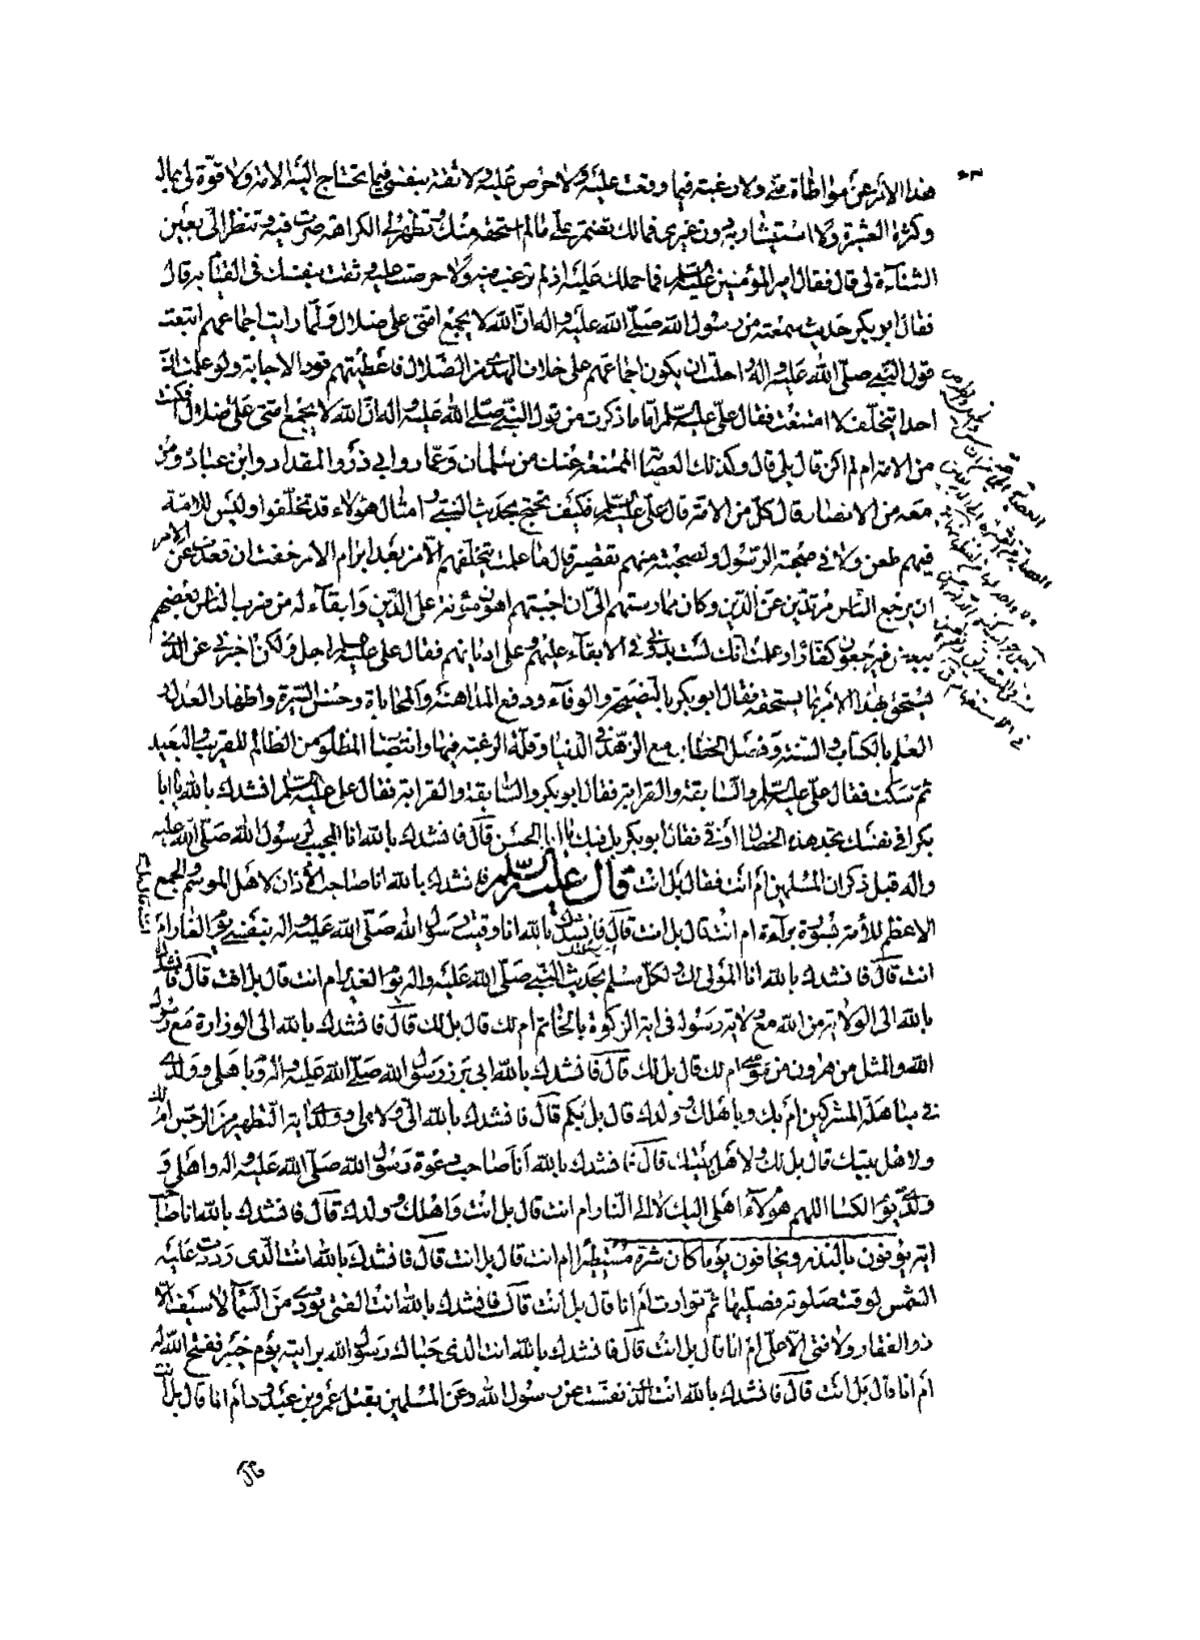 هذا الأمر عن مواطاة منّي ولا رغبة فيما وقعت عليه ولا حرص عليه ولا ثقة بنفسي فيما يحتاج اليه الامة ولا قوّة لي بمال
وكثرة العشيرة ولا استيثار به دون غيري فمالك تضمر عليّ مالم استحقه منك وتظهر لي الكراهة صرت فيه وتنظر اليّ بعين
الشنآءة لي قال فقال امير المؤمنين عليه السلم فما حملك عليه اذ لم ترغب فيه ولا حرصت عليه وثقت بنفسك في القيام به قال
فقال ابو بكر حديث سمعته من رسول الله صلّى الله عليه واله انّ الله لا يجمع امّتي على ضلال ولمّا رايت اجماعهم اتبعت
قول النبي صلّى الله عليه واله واحلت ان يكون اجماعهم على خلاف الهدى من الضلال فاعطيتهم قود الاجابة ولو علمت انّ
احدا يتخلّف لامتنعت فقال عليّ عليه السلم امّا ما ذكرت من قول النبيّ صلّى الله عليه واله انّ الله لا يجمع امتي على ضلال افكنت
من الامة ام لم اكن قال بلى قال وكذلك العصابة الممتنعة عنك من سلمان وعمّار وابي ذر والمقداد وابن عبادة ومن
معه من الانصار قال كل من الامّة قال علي عليه السلم فكيف تحتج بحديث النبيّ وامثال هؤلاء قد تخلّفوا وليس للامّة
فيهم طعن ولا في صحبة الرسول ولصحبته منهم تقصير قال ما علمت بتخلّفهم الّا من بعد ابرام الامر وخفت ان قعدت عن الامر
ان يرجع الناس مرتدّين عن الدّين وكان ممارستهم الى ان اجبتهم اهون مؤنة على الدّين وابقاء له من ضرب الناس بعضهم
ببعض فيرجعون كفّارا وعلمت انّك لست بدوني في الابقاء عليهم وعلى اديانهم فقال علي عليه السلم اجل ولكن اخبرني عن الّذي
يستحق هذا الأمر بما يستحقه فقال ابو بكر بالنصيحة والوفآء ودفع المداهنة والمحاباة وحسن السيرة واظهار العدل و
العلم بالكتاب والسنة وفصل الخطاب مع الزهد في الدنيا وقلّة الرغبة فيها وانتصاف المظلوم من الظالم للقريب والبعيد
ثم سكت فقال علي عليه السلم والسابقة والقرابة فقال ابو بكر والسّابقة والقرابة فقال علي عليه السلم انشدك بالله يا ابا
بكر افي نفسك تجد هذه الخصال او فيّ فقال ابو بكر بل فيك يا ابا الحسن قال فانشدك بالله انا المجيب لرسول الله صلّى الله عليه
واله قبل ذكران المسلمين أم أنت فقال بل انت قال عليه السلم فانشدك بالله انا صاحب الأذان لاهل الموسم والجمع
الاعظم للأمة بسورة برآءة ام انت قال بل انت قال فانشدك بالله انا وقيت رسول الله صلّى الله عليه واله بنفسي يوم الغار ام
انت قال فانشدك بالله انا المولى لك ولكل مسلم بحديث النبي صلّى الله عليه واله يوم الغدير ام انت قال بل انت قال فانشدك
بالله الى الولاية من الله مع ولاية رسوله في اية الزكوة بالخاتم ام لك قال بل لك قال فانشدك بالله الى الوزارة مع رسول
الله والمثل من هرون من موسى ام لك قال بل لك قال فانشدك بالله ابي برز رسول الله صلّى الله عليه واله وباهلي وولدي
في مباهلة المشركين أم بك وباهلك وولدك قال بل بكم قال فانشدك بالله الي ولاهلي وولدي اية التطهير من الرجس ام لك
ولاهل بيتك قال بل لك ولاهل بيتك قال فانشدك بالله انا صاحب دعوة رسول الله صلّى الله عليه واله واهلي و
ولدي يوم الكساء اللهم هؤلاء اهلي اليك لا الى النار ام انت قال بل انت واهلك وولدك قال فانشدك بالله انا صاحب
اية يوفون بالنذر ويخافون يوما كان شره مستطيرا ام انت قال بل انت قال فانشدك بالله انت الّذي ردّت عليه
الشمس لوقت صلوته فصلّيها ثم توارت أم انا قال بل انت قال فانشدك بالله انت الفتى نودي من السّماء لا سيف الّا
ذو الفقار ولا فتى الّا عليّ ام انا قال بل انت قال فانشدك بالله انت الذي حباك رسول الله برايته يوم خيبر ففتح الله له
أم انا قال بل انت قال فانشدك بالله انت الّذي نفّست عن رسول الله وعن المسلمين بقتل عمرو بن عبد ودّ أم انا قال بل انت
قال